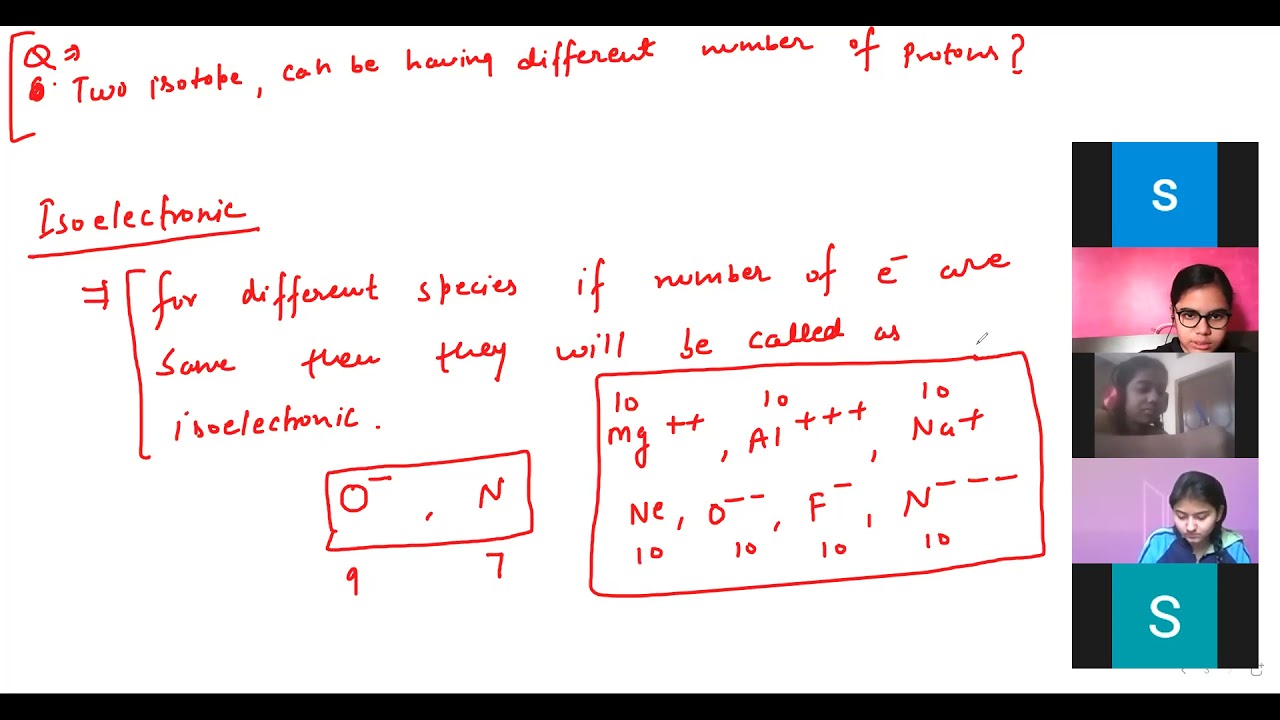 Q ⇒
6. Two isotope, can be having different number of Protons?
Isoelectronic
⇒ for different species if number of e⁻ are
same then they will be called as
isoelectronic.
10 10 10
Mg ++, Al +++, Na+
O⁻, N
9 7
Ne, O⁻⁻, F⁻, N⁻⁻⁻
10 10 10 10
S
S